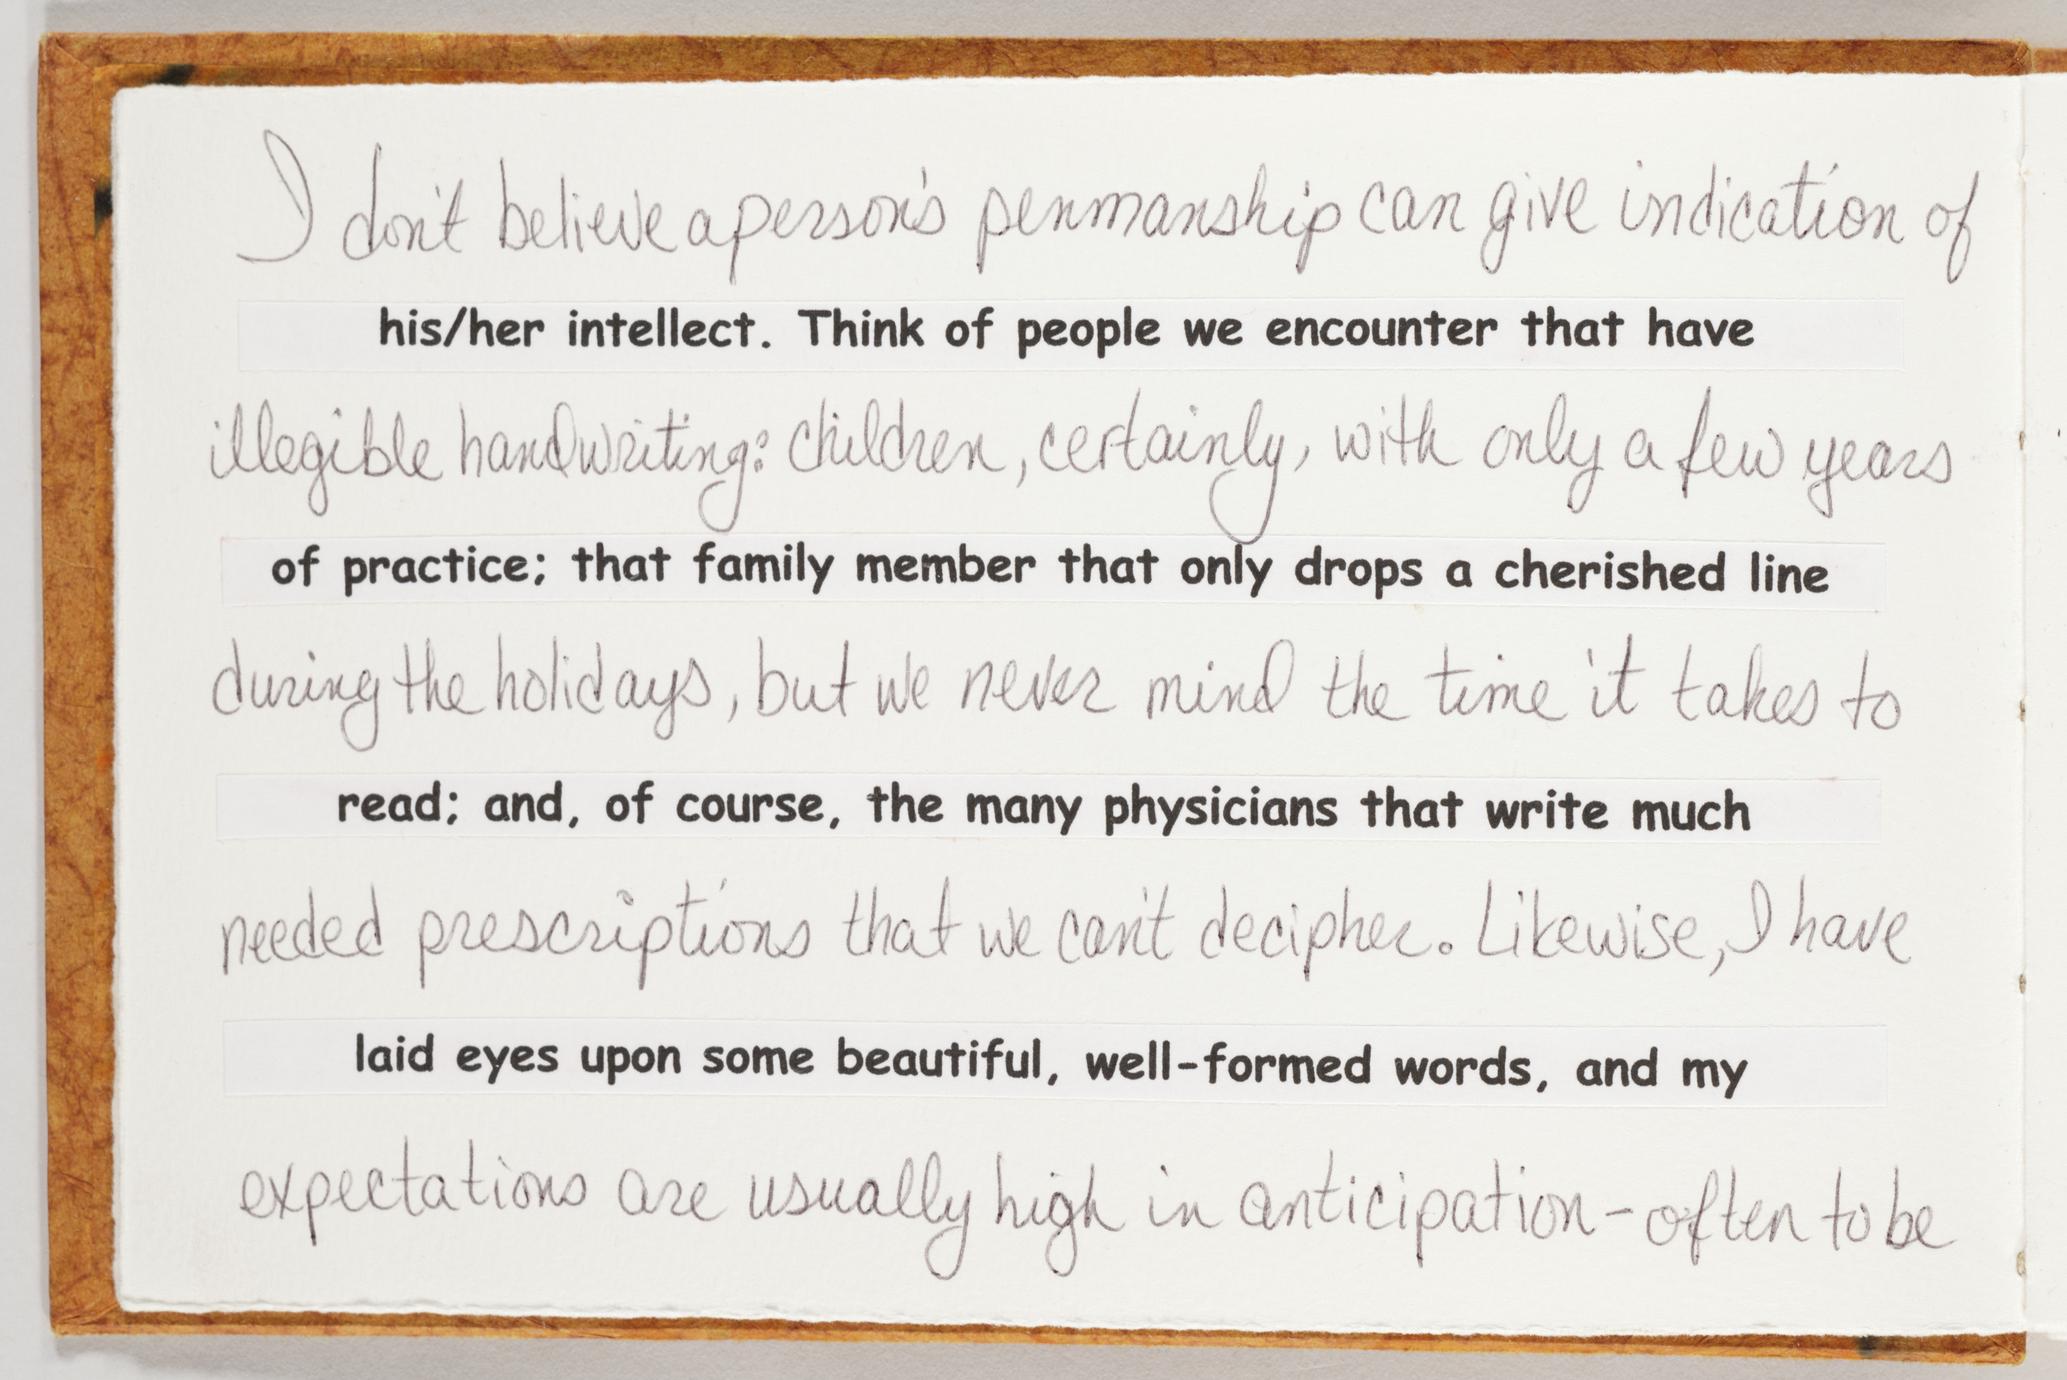 I don't believe a person's penmanship can give indication of
his/her intellect. Think of people we encounter that have
illegible handwriting: children, certainly, with only a few years
of practice; that family member that only drops a cherished line
during the holidays, but we never mind the time it takes to
read; and, of course, the many physicians that write much
needed prescriptions that we can't decipher. Likewise, I have
laid eyes upon some beautiful, well-formed words, and my
expectations are usually high in anticipation - often to be